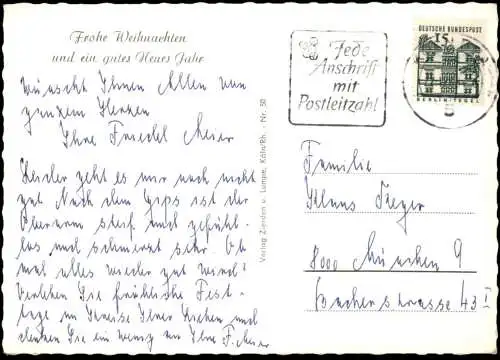 Frohe Weihnachten
und ein gutes Neues Jahr
wünscht Ihnen Allen von
ganzem Herzen
Ihre Friedel Meier
Leider geht es mir noch nicht
gut Nach dem Gips ist der
Oberarm steif und gefühl-
los und schmerzt sehr. Ob
mal alles wieder gut wird?
Verleben Sie fröhliche Fest-
tage im Kreise Ihrer Lieben und
denken Sie ein wenig an Ihre F. Meier
Verlag Ziersden u. Lumpe, Köln/Rh. - Nr. 50
Jede
Anschrift
mit
Postleitzahl
DEUTSCHE BUNDESPOST
15
BERLIN-TEGEL
Familie
Klaus Jieger
8000 München 9
Bacherstrasse 43 I